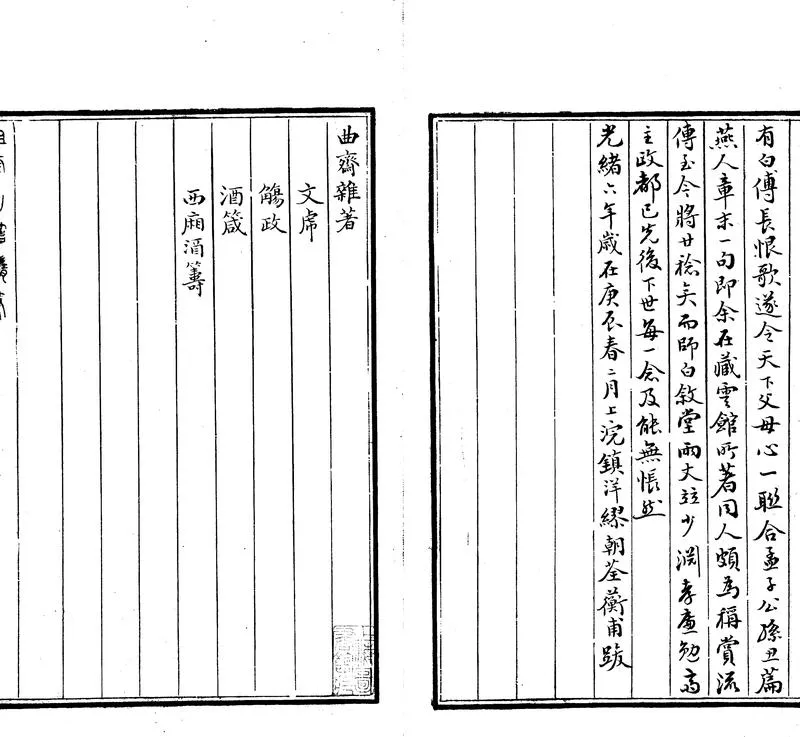 有白傅長恨歌遂令天下父母心一聯合孟子公孫丑篇
燕人章末一句即余在藏雲館所著同人頗為稱賞流
傳至今將廿稔矣而師白敘堂兩丈竝少淵孝廉勉高
主政都已先後下世每一念及能無悵然
光緒六年歲在庚辰春二月上浣鎮洋繆朝荃蘅甫跋
曲齋雜著
文虎
觴政
酒箴
西廂酒籌